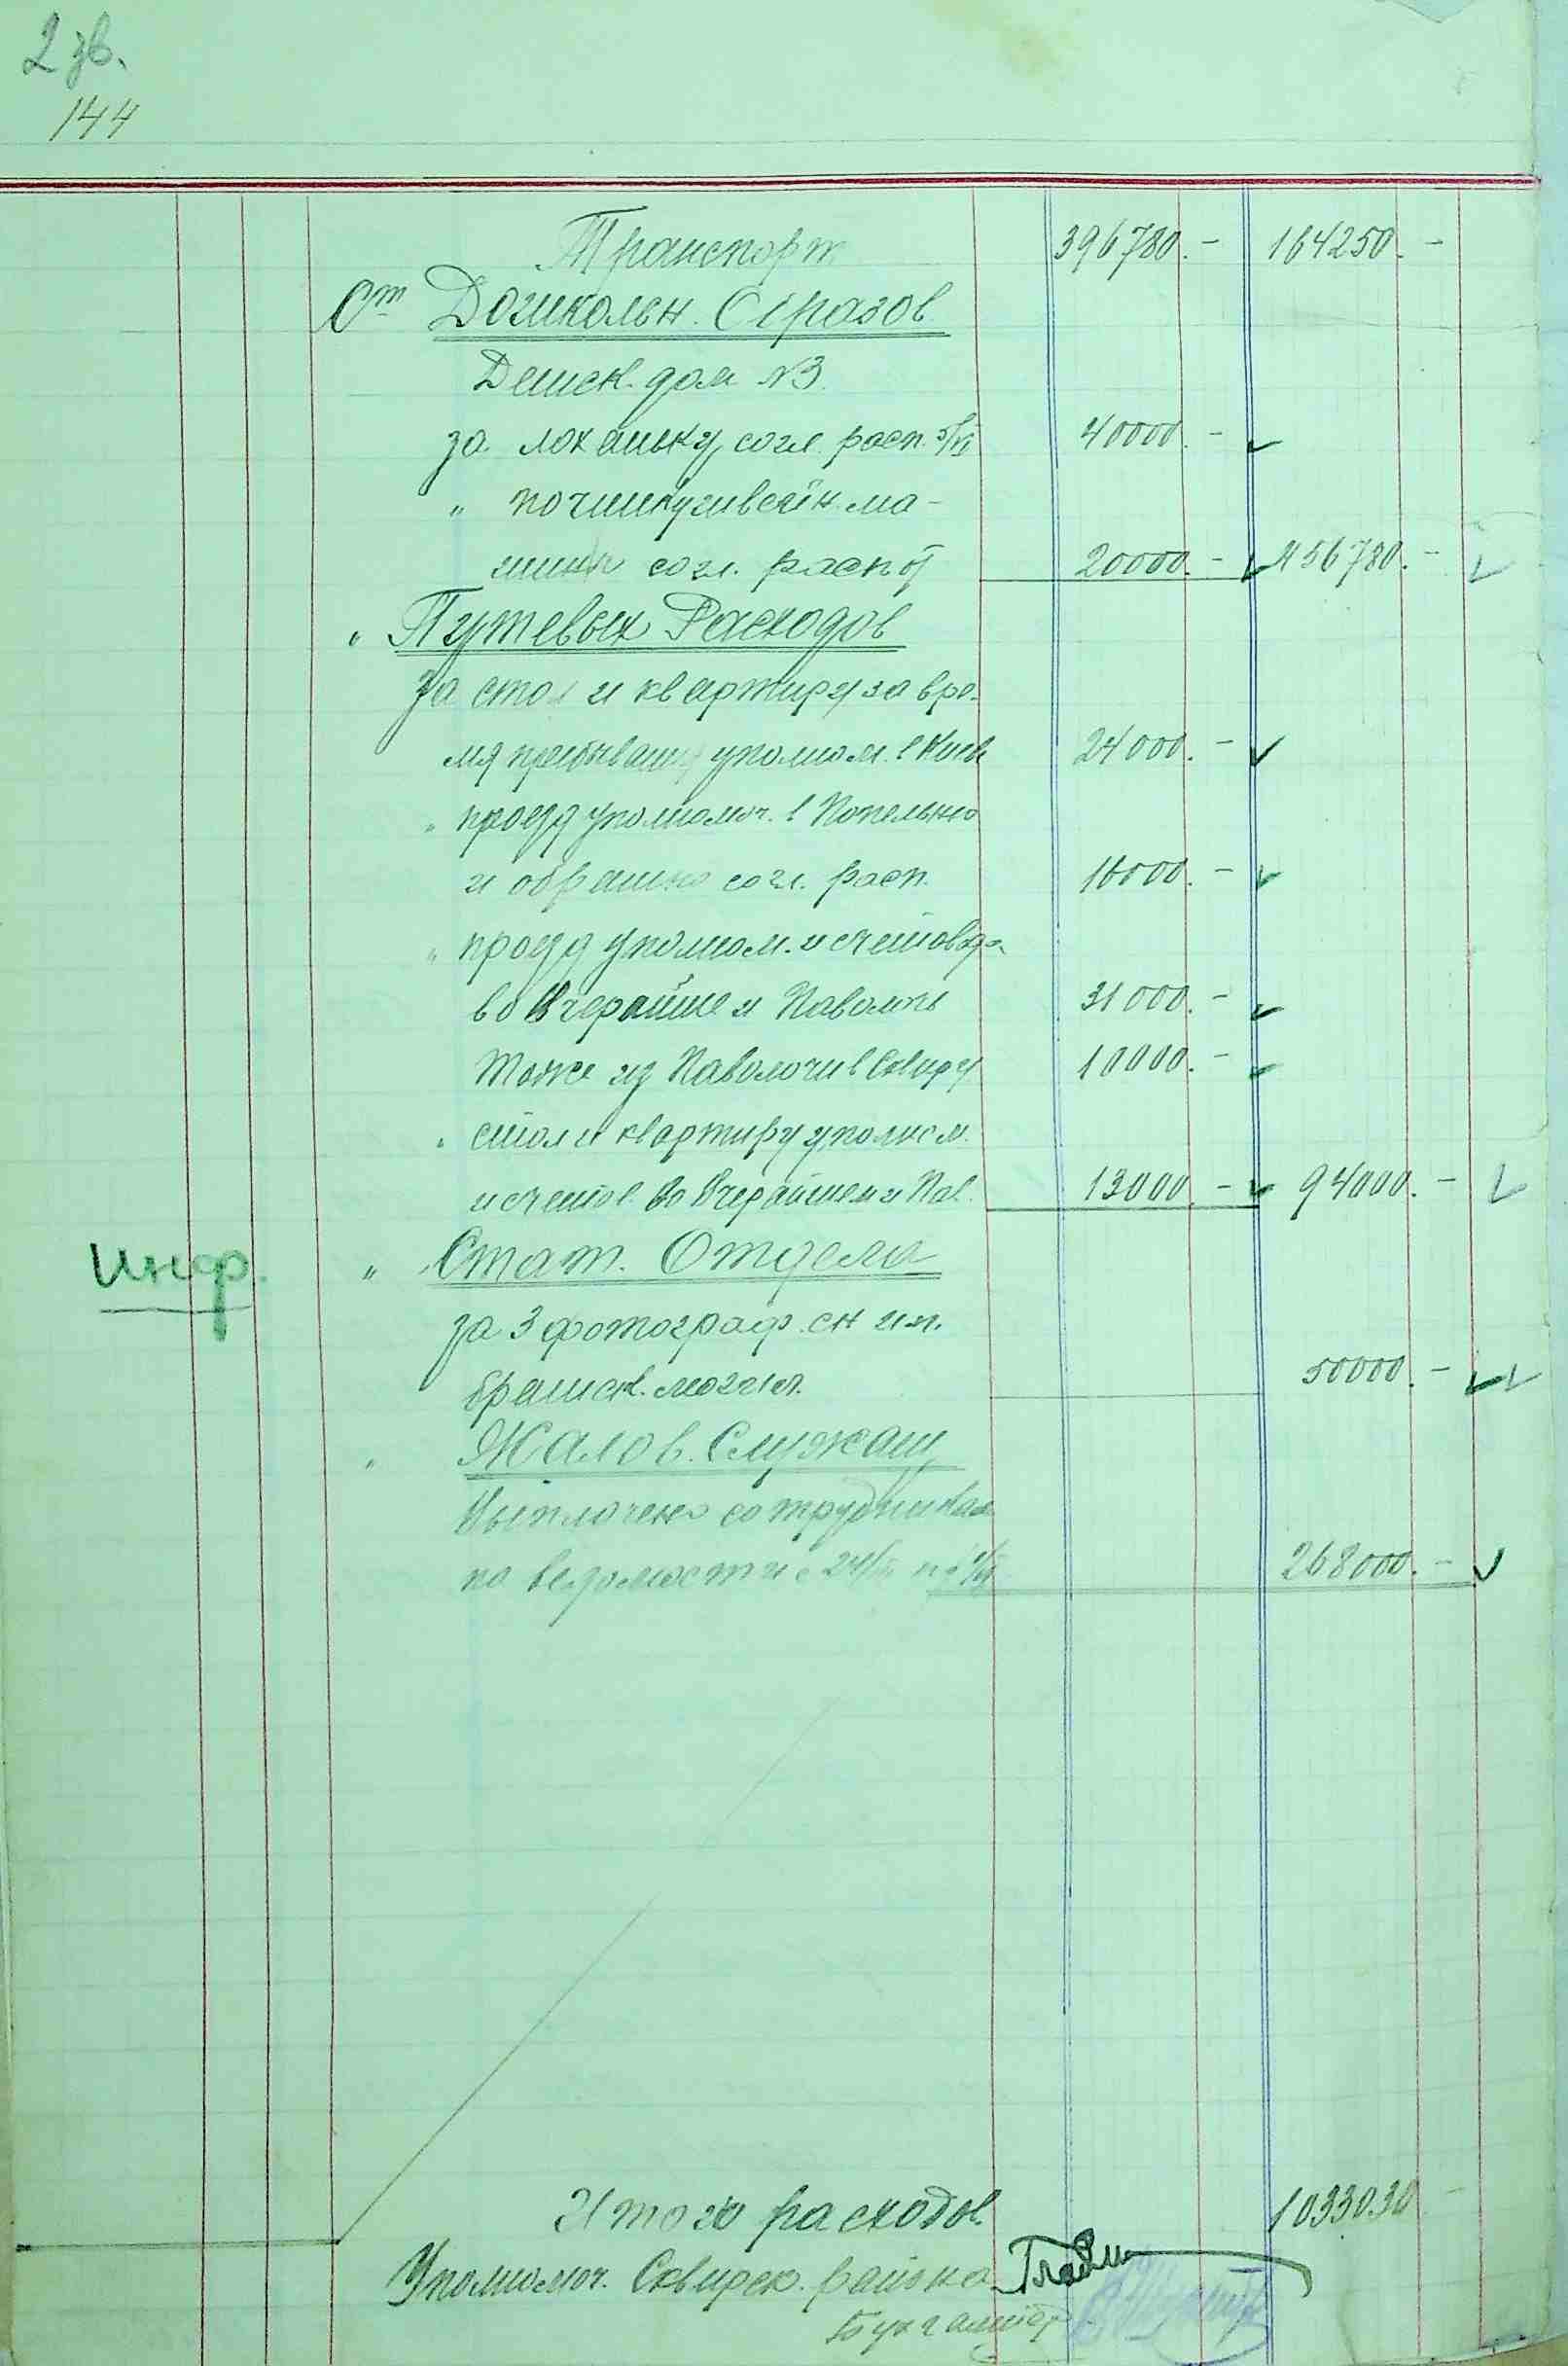 2 зв.
144
Транспорт 396780.- 164250.-
Ст Дошкольн. Образов
Детск. дом №3.
за лоханку согл. расп. 5/VI 40000.-
" починку швейн. ма-
шины согл. расп от 20000.- 456780.-
" Путевых Расходов
за стол и квартиру за вре-
мя пребывания уполном. в Киеве 24000.-
" проезд уполномоч. в Попельню
и обратно согл. расп. 16000.-
" проезд уполном. и счетовода
во Вчерайше и Паволочь 31000.-
тоже из Паволочи в Сквиру 10000.-
" стол и квартиру уполном.
и счетов. во Вчерайшем и Пав. 13000.- 94000.-
Инф.
" Стат. Отдела
за 3 фотограф. сним.
братск. могил. 50000.-
" Жалов. Служащ
Выплачено сотрудникам
по ведомости с 24/ по 1/VI 268000.-
Итого расходов. 1033030-
Уполномоч. Сквирск. района
Бухгалтер